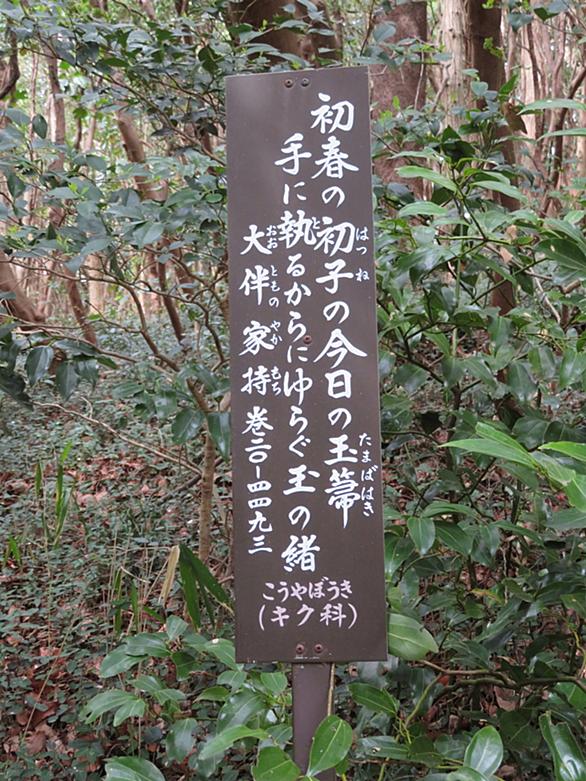 初春の初子の今日の玉箒
はつね
たまばはき
手に執るからにゆらぐ玉の緒
と
大伴家持 巻二〇ー四四九三
おおとものやかもち
こうやぼうき
(キク科)